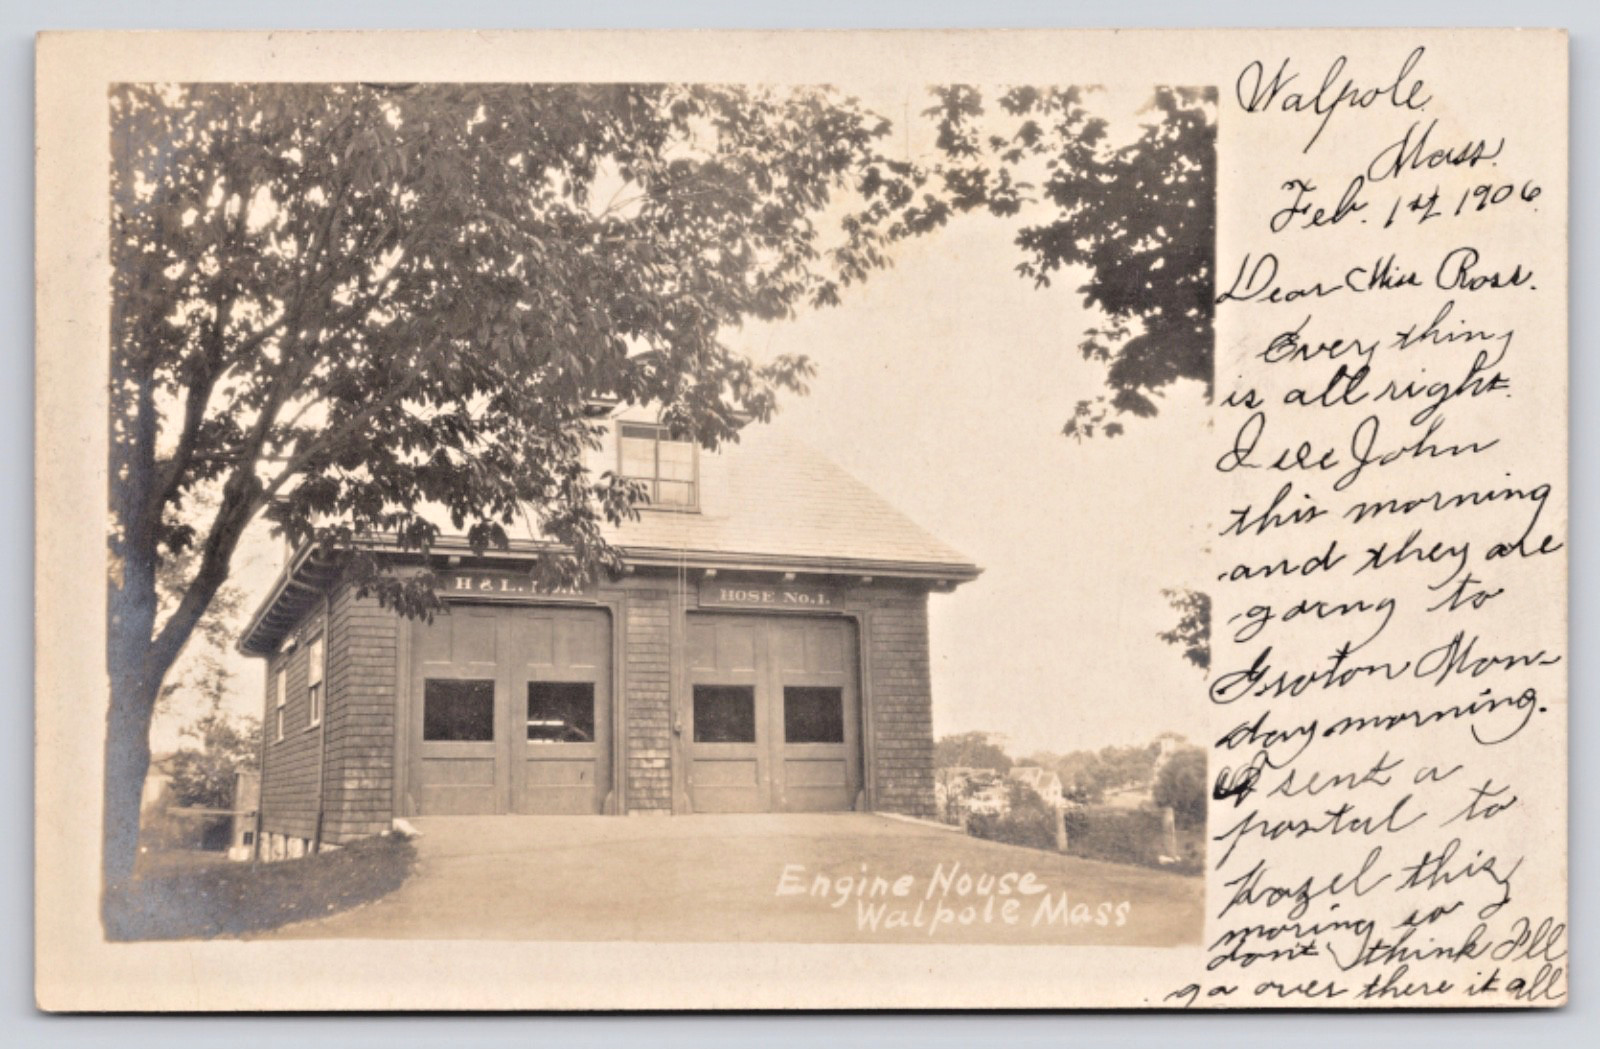 H & L. No.1.
HOSE No.1.
Engine House
Walpole Mass
Walpole
Mass.
Feb. 1st 1906.
Dear Miss Ross.
Every thing
is all right.
I see John
this morning
and they are
going to
Groton Mon-
day morning.
I sent a
postal to
Hazel this
moring so
dont think I'll
go over there it all